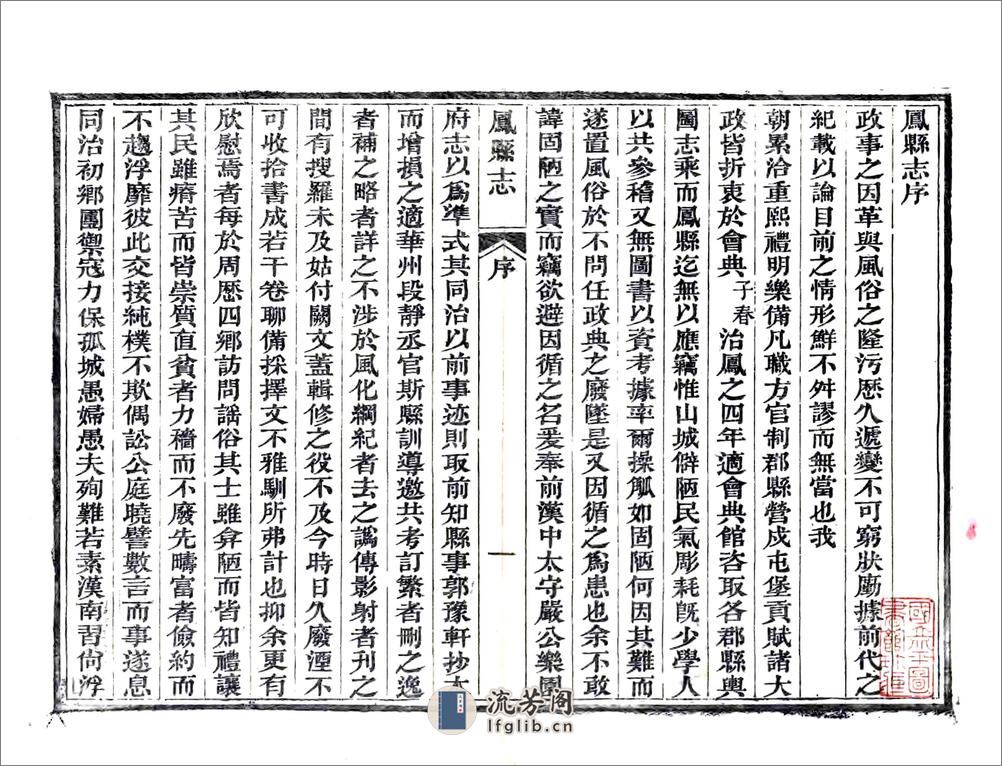 鳳縣志序
政事之因革與風俗之隆污歷久遞變不可窮狀勵據前代之
紀載以論目前之情形鮮不舛謬而無當也我
朝累洽重熙禮明樂備凡職方官制郡縣營戍屯堡貢賦諸大
政皆折衷於會典子春治鳳之四年適會典館咨取各郡縣輿
圖志乘而鳳縣迄無以應竊惟山城僻陋民氣彫耗旣少學人
以共參稽又無圖書以資考據率爾操觚如固陋何因其難而
遂置風俗於不問任政典之廢墜是又因循之為患也余不敢
諱固陋之實而竊欲避因循之名爰奉前漢中太守嚴公樂園
鳳縣志
序
一
府志以為準式其同治以前事迹則取前知縣事郭豫軒抄本
而增損之適華州段靜丞官斯縣訓導邀共考訂繁者刪之逸
者補之略者詳之不涉於風化綱紀者去之譌傳影射者刊之
間有搜羅未及姑付闕文蓋輯修之役不及今時日久廢湮不
可收拾書成若干卷聊備採擇文不雅馴所弗計也抑余更有
欣慰焉者每於周歷四鄉訪問謡俗其士雖弇陋而皆知禮讓
其民雖瘠苦而皆崇質直貧者力穡而不廢先疇富者儉約而
不趨浮靡彼此交接純樸不欺偶訟公庭曉譬數言而事遂息
同治初鄉團禦寇力保孤城愚婦愚夫殉難若素漢南習尚浮
流芳阁
lfglib.cn